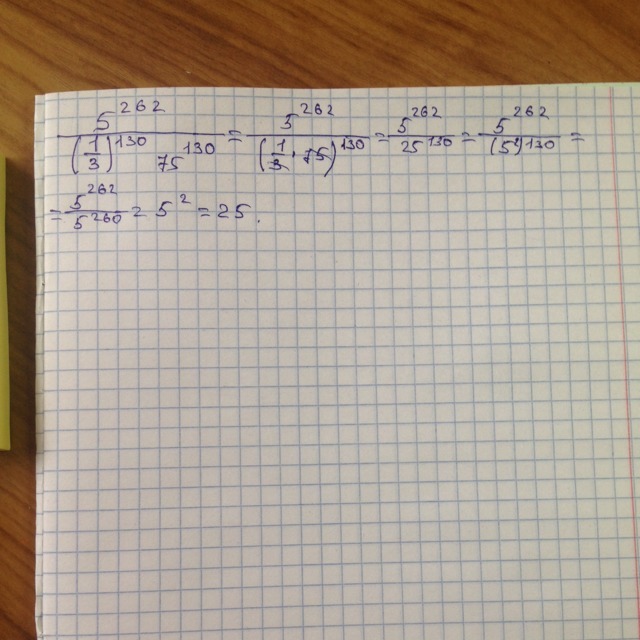 5^262 / ((1/3)^130 75^130) = 5^262 / (1/3 · 75)^130 = 5^262 / 25^130 = 5^262 / (5²)^130 =
= 5^262 / 5^260 = 5² = 25.